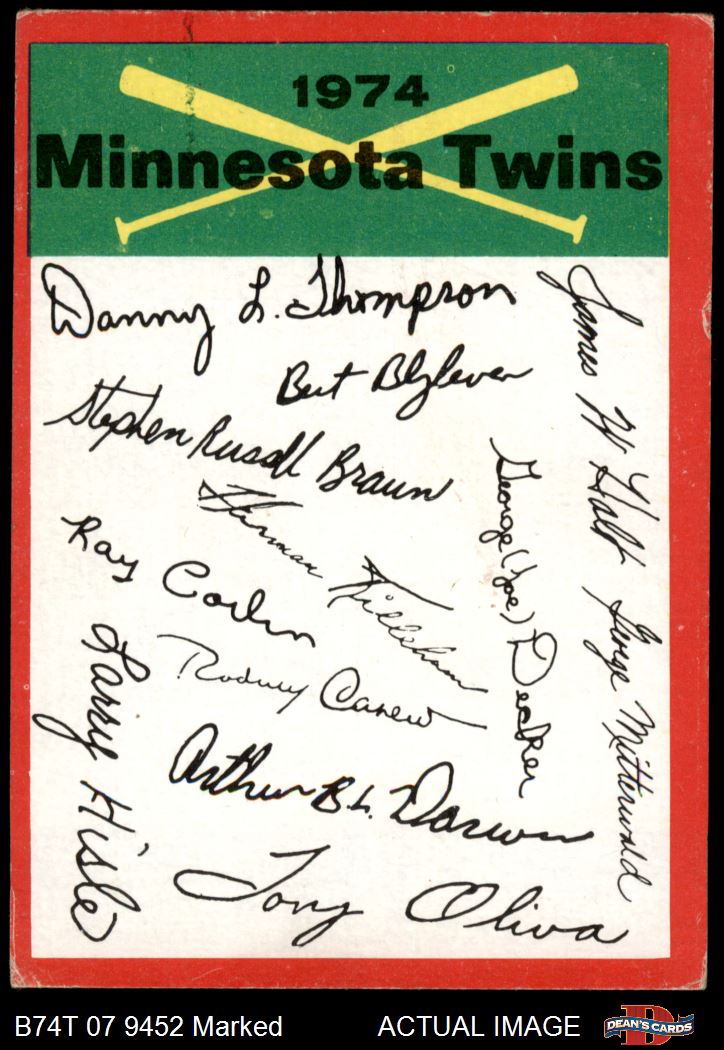 1974
Minnesota Twins
Danny L. Thompson
Bert Blyleven
Stephen Russell Braun
Herman Killebrew
Ray Corbin
Rodney Carew
Larry Hisle
Arthur B L. Darwin
Tony Oliva
George (Joe) Decker
James W Holt
George Mitterwald
B74T 07 9452 Marked
ACTUAL IMAGE
D
DEAN'S CARDS